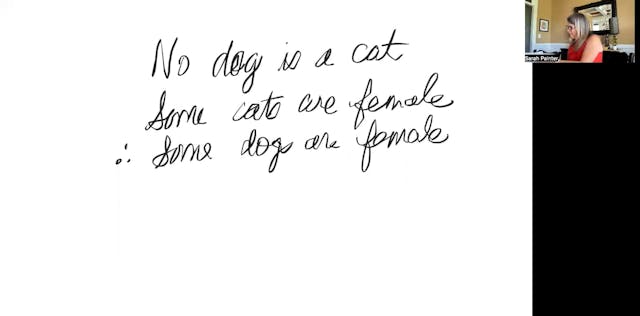 No dog is a cat
Some cats are female
∴ Some dogs are female
Sarah Painter